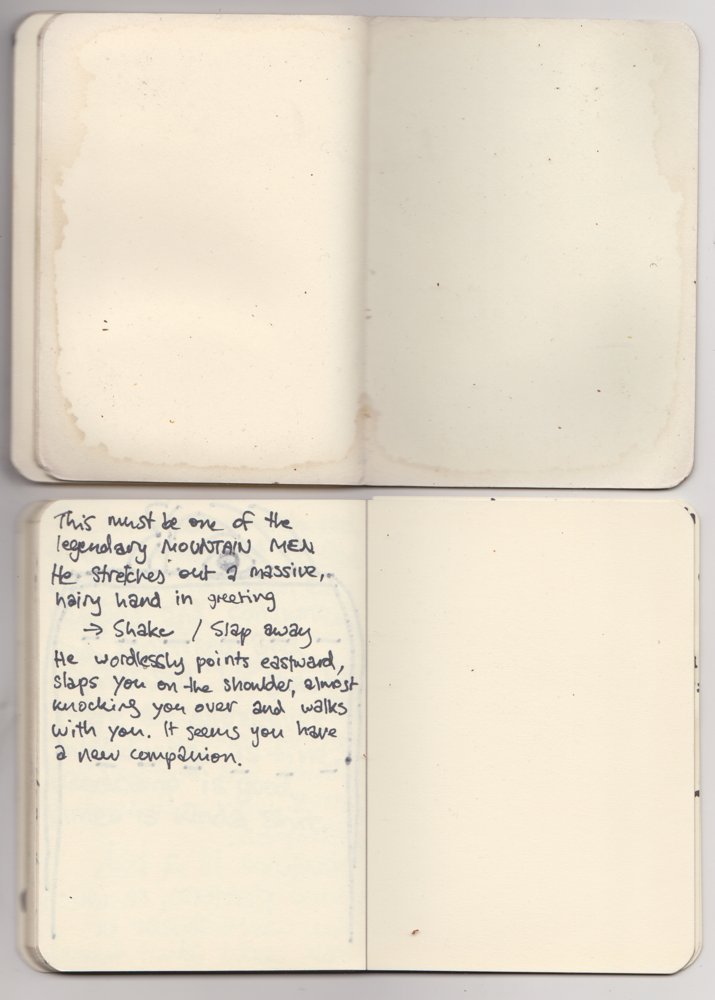 This must be one of the
legendary MOUNTAIN MEN
He stretches out a massive,
hairy hand in greeting
→ Shake / Slap away
He wordlessly points eastward,
slaps you on the shoulder, almost
knocking you over and walks
with you. It seems you have
a new companion.